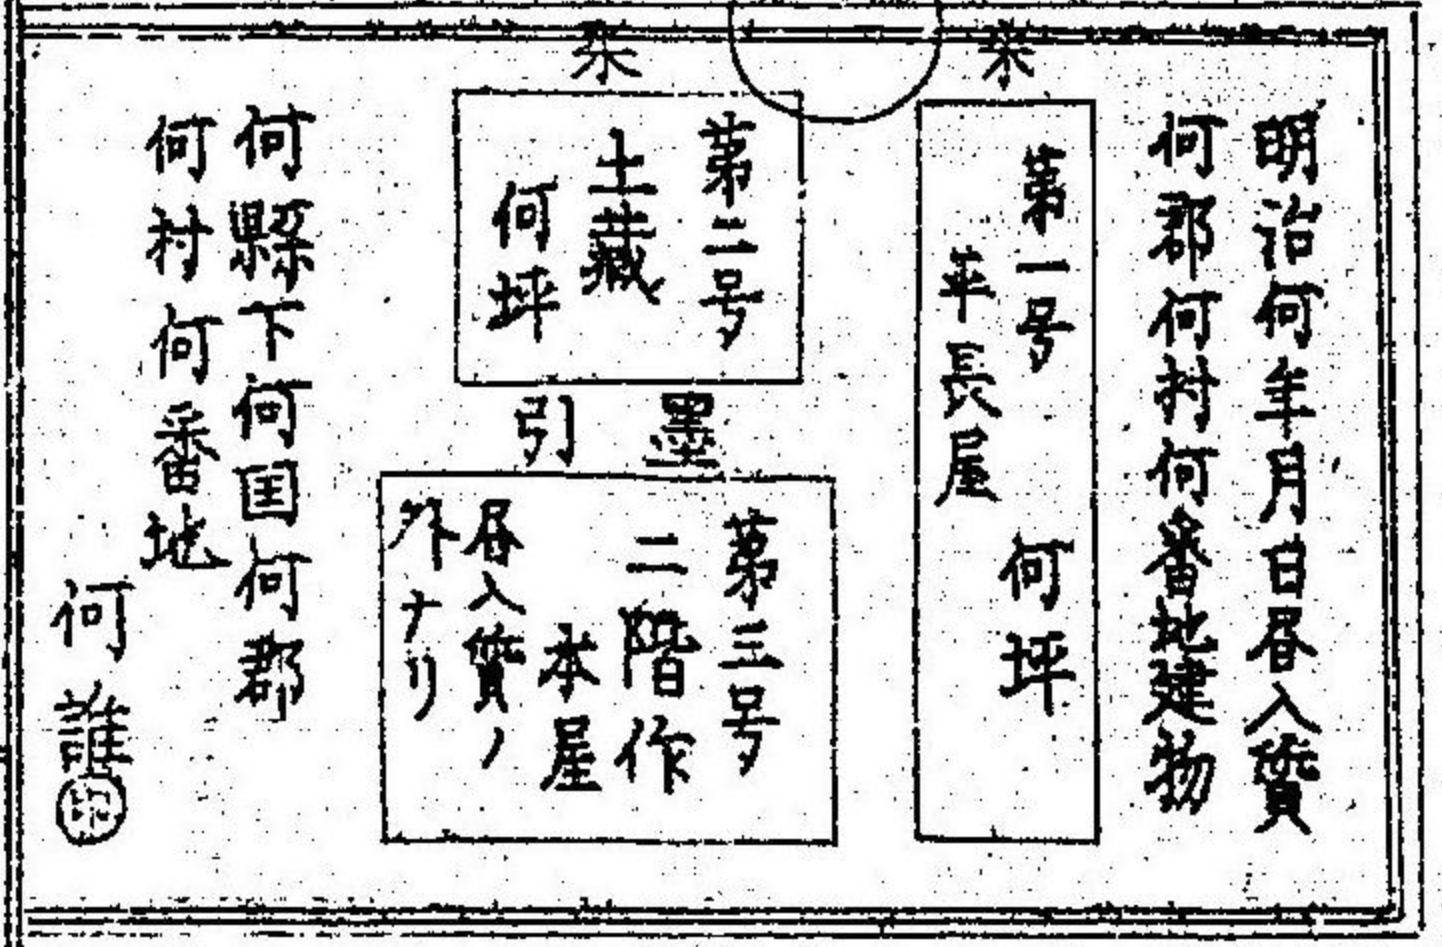 明治何年月日書入質
何郡何村何番地建物
朱
第一号 何坪
平長屋
朱
第二号
土蔵
何坪
墨引
第三号
二階作
本屋
書入質ノ
外ナリ
何縣下何国何郡
何村何番地
何誰㊞